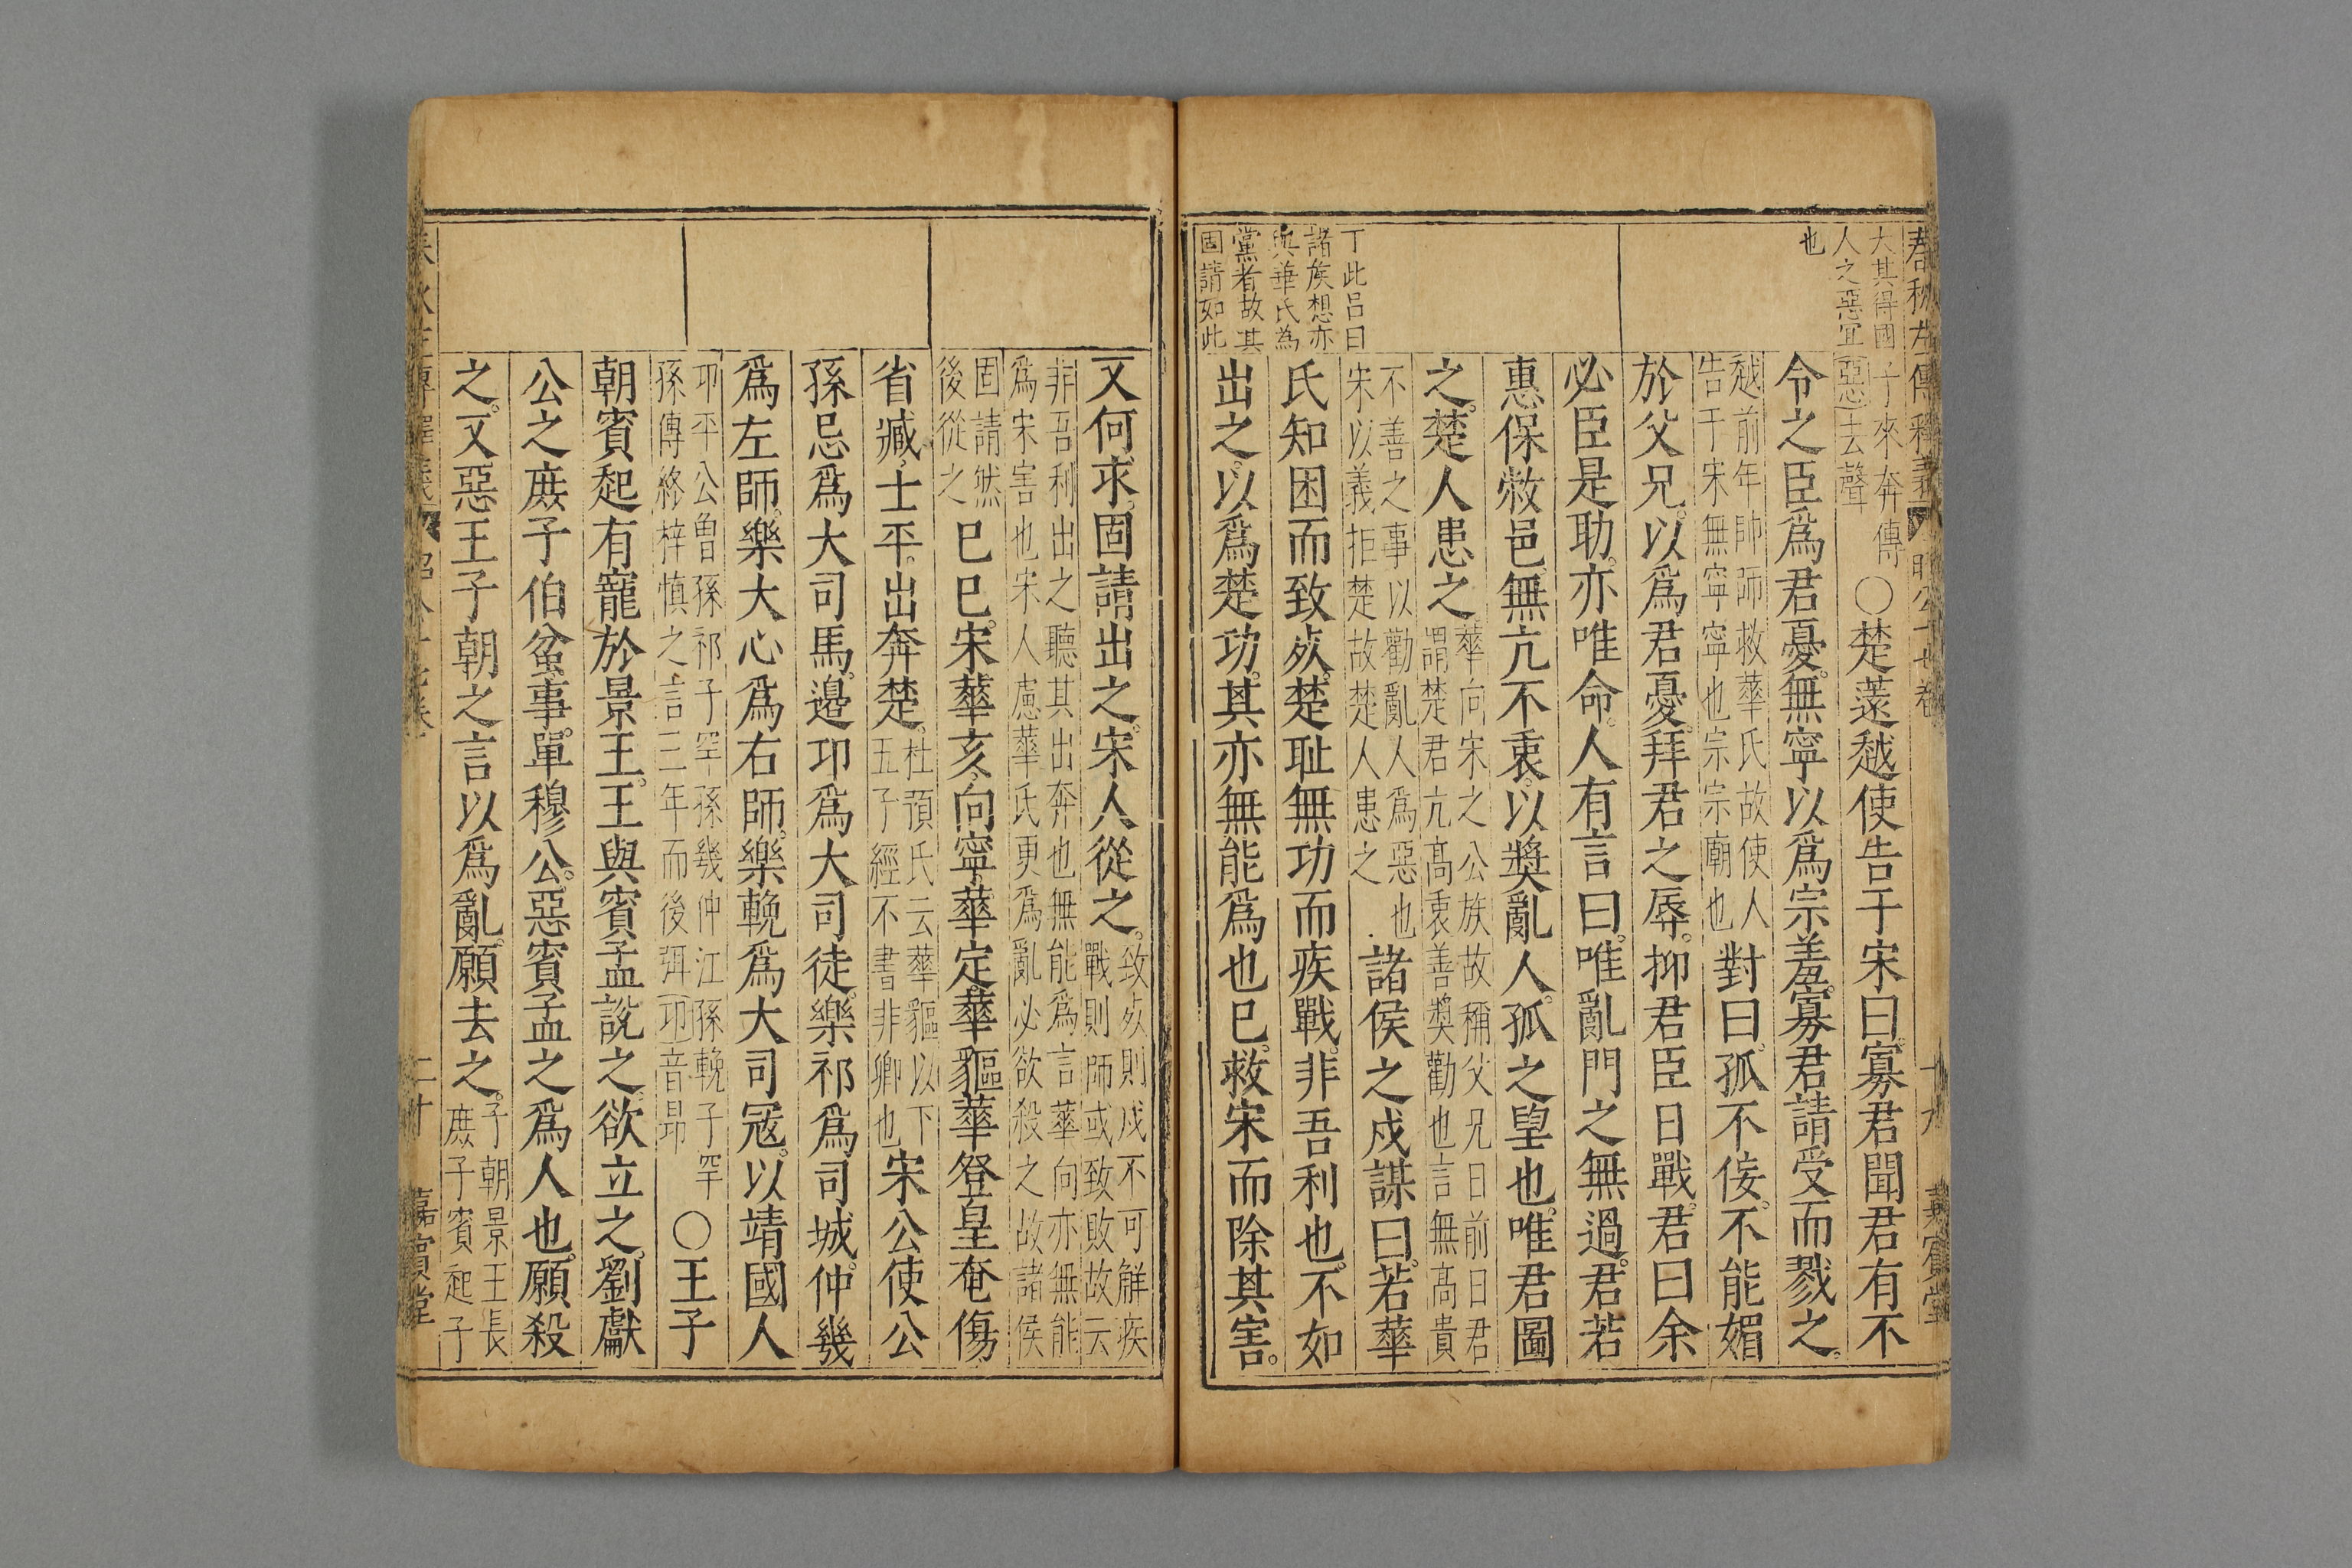 大其得國
人之惡宜
也
丁此吕曰
諸族想亦
與華氏為
黨者故其
固請如此
子來奔傳
惡去聲
○楚薳越使告于宋曰。寡君聞君有不
令之臣爲君憂。無寧以爲宗羞。寡君請受而戮之。
越前年帥師救華氏故使人
告于宋無寧寧也宗宗廟也
對曰。孤不佞。不能媚
於父兄。以爲君憂。拜君之辱。抑君臣日戰。君曰余
必臣是助。亦唯命。人有言曰。唯亂門之無過。君若
惠保敝邑。無亢不衷。以奬亂人。孤之望也。唯君圖
之。楚人患之
華向宋之公族故稱父兄日前日君
謂楚君亢髙衷善奬勸也言無髙貴
不善之事以勸亂人爲惡也
宋以義拒楚故楚人患之
諸侯之戍謀曰。若華
氏知困而致死。楚耻無功而疾戰。非吾利也。不如
出之。以爲楚功。其亦無能爲也已。救宋而除其害。
又何求。固請出之。宋人從之。
致死則戍不可解疾
戰則師或致敗故云
非吾利出之聽其出奔也無能爲言華向亦無能
爲宋害也宋人慮華氏更爲亂必欲殺之故諸侯
固請然
後從之
已巳。宋華亥、向寧、華定、華貙、華登、皇奄傷、
省臧、士平。出奔楚。
杜預氏云華貙以下
五子經不書非卿也
宋公使公
孫忌爲大司馬。邊卬爲大司徒。樂祁爲司城。仲幾
爲左師。樂大心爲右師。樂輓爲大司冦。以靖國人
卬平公魯孫祁子罕孫幾仲江孫輓子罕
孫傳終梓慎之言三年而後弭卬音昻
○王子
朝賓起有寵於景王。王與賓孟說之。欲立之。劉獻
公之庶子伯蚠事單穆公。惡賓孟之爲人也。願殺
之。又惡王子朝之言以爲亂。願去之。
子朝景王長
庶子賓起子
二十